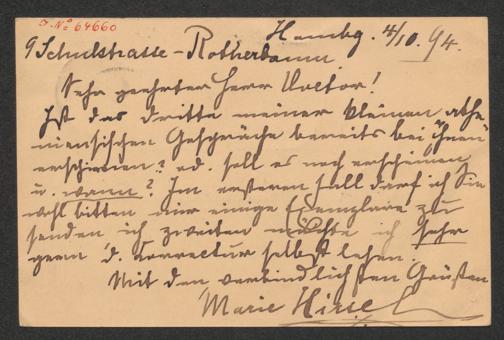 J. No 64660
Hambg. 4/10. 94.
9 Schulstrasse - Rotherbaum.
Sehr geehrter Herr Doctor!
Ist das dritte meiner kleinen athe
niensischen Gespräche bereits bei Ihnen
erschienen? od. soll es noch erscheinen
u. wann? Im ersteren Fall darf ich Sie
wohl bitten mir einige Exemplare zu
senden im zweiten möchte ich sehr
gern d. Correctur selbst lesen.
Mit den verbindlichsten Grüßen
Marie Hirsch